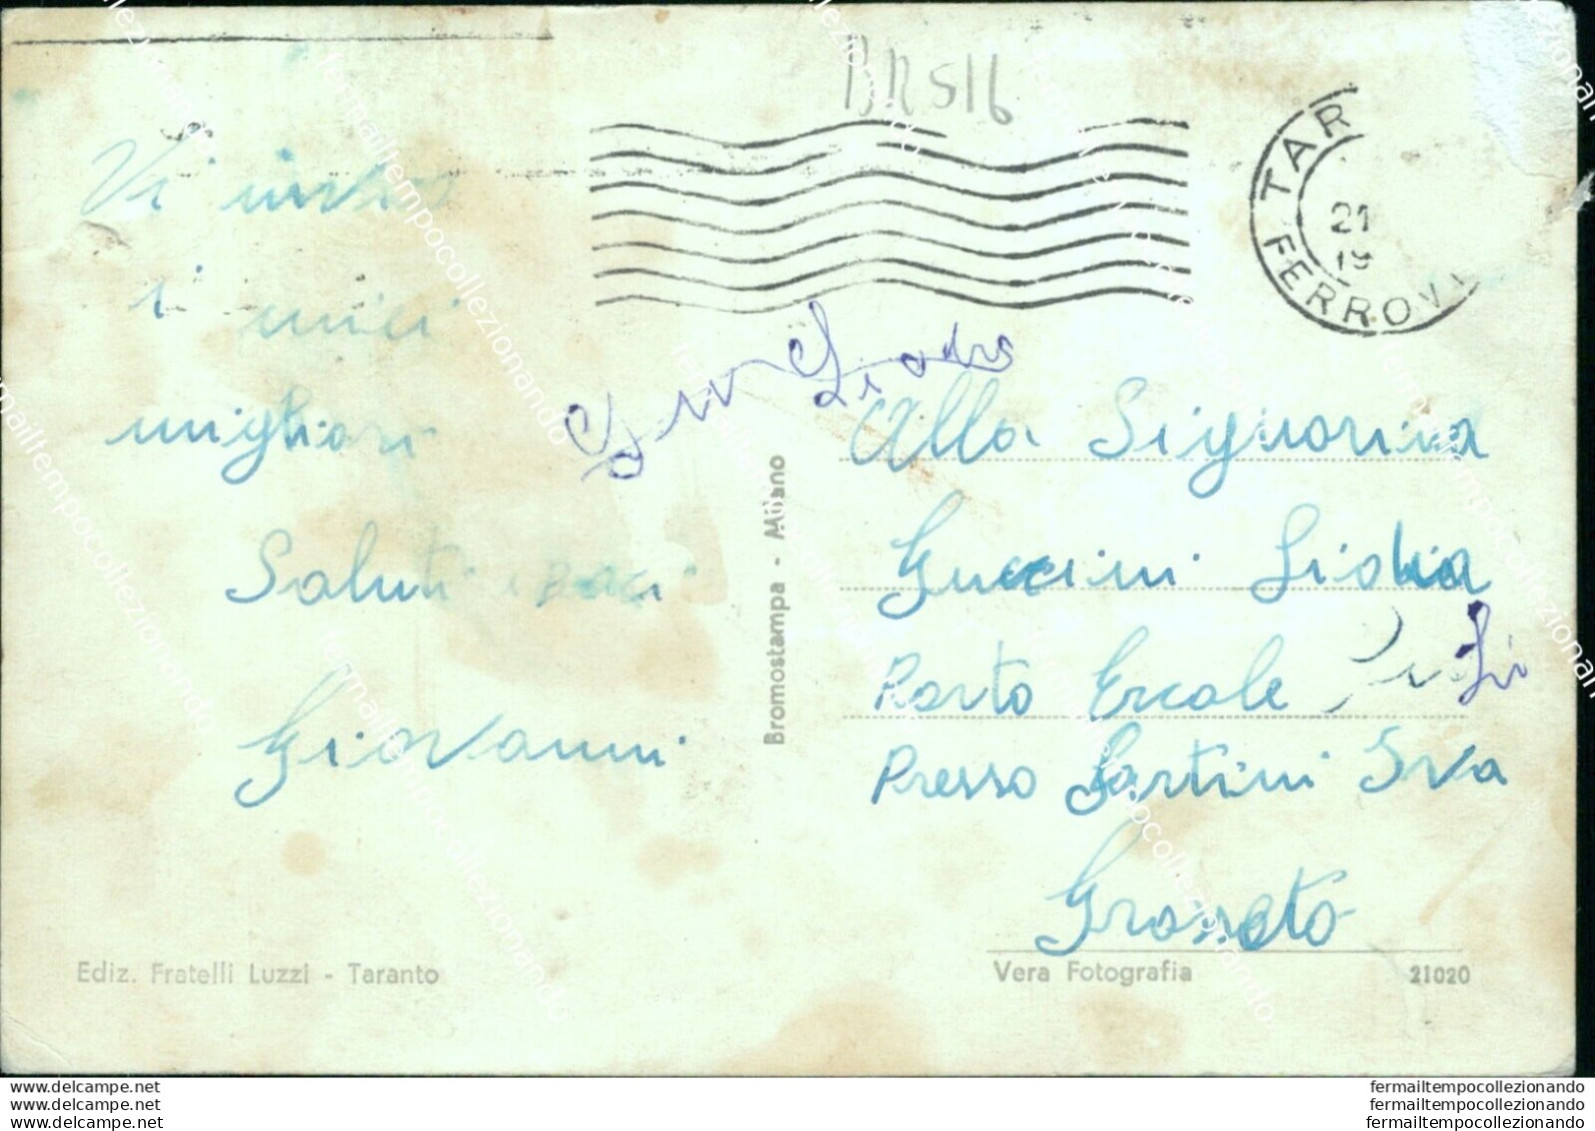 BR516
TAR
21
19
FERROV
Vi invio
i miei
migliori
Saluti baci
Giovanni
Alla Signorina
Guccini
Porto Ercole
Presso Sartini Iva
Grosseto
Bromostampa - Milano
Ediz. Fratelli Luzzi - Taranto
Vera Fotografia
21020
www.delcampe.net
www.delcampe.net
www.delcampe.net
fermailtempocollezionando
fermailtempocollezionando
fermailtempocollezionando